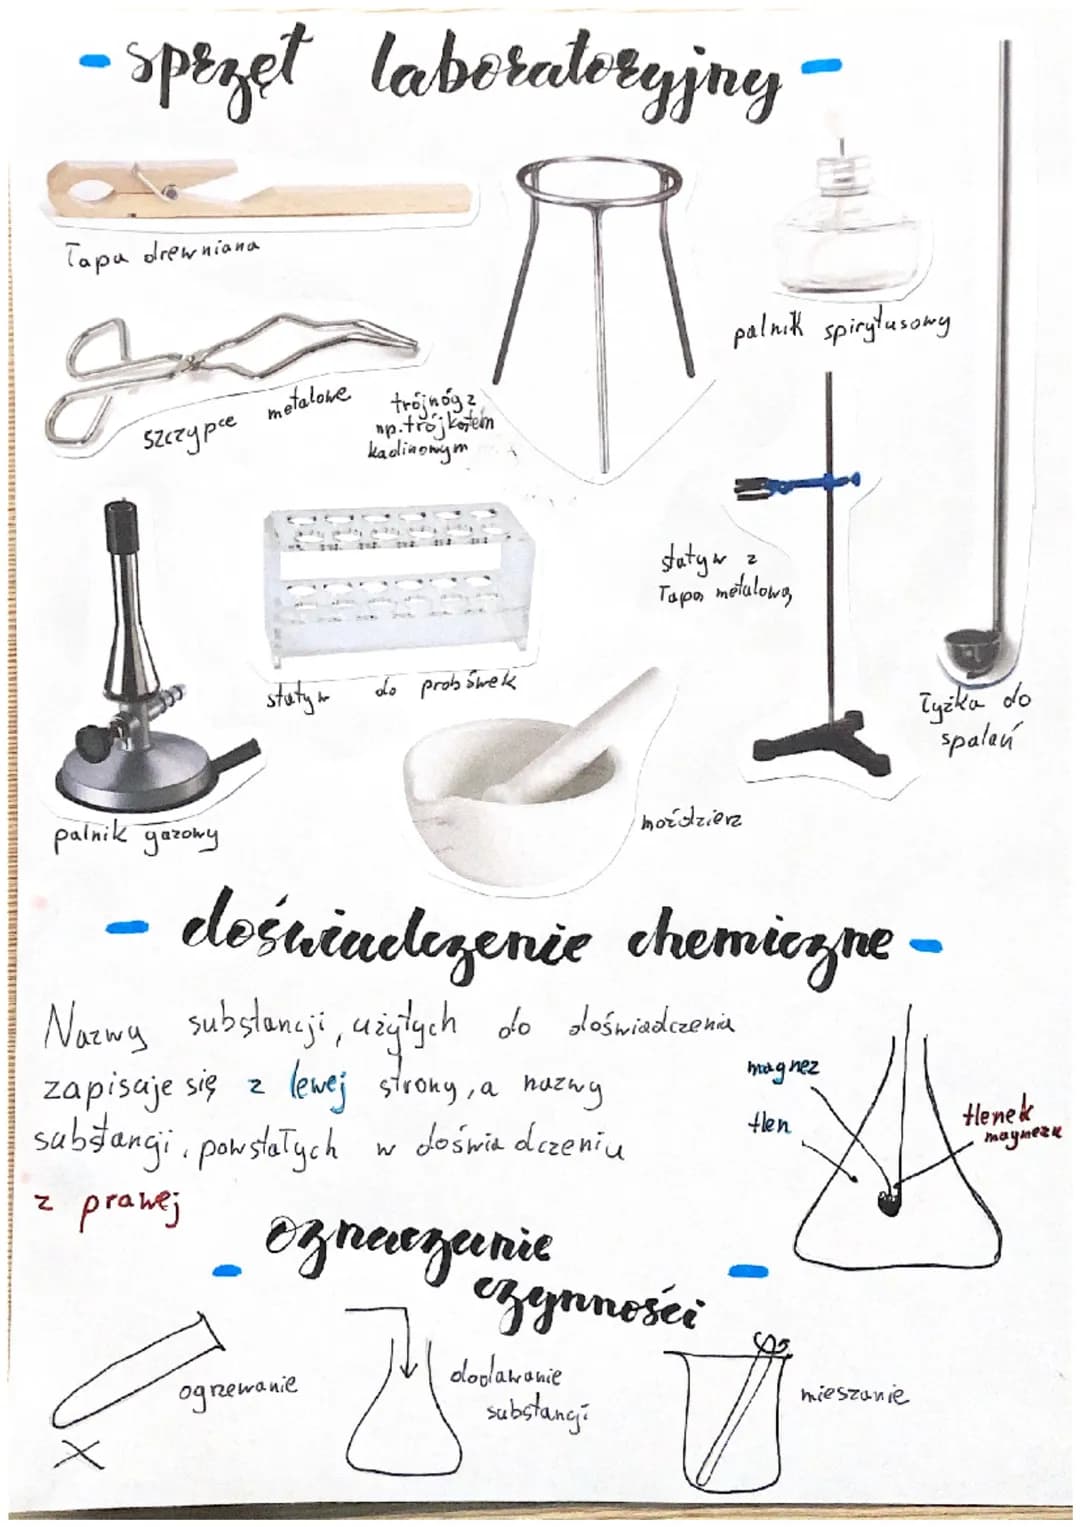 - sprzęt laboratoryjny -
łapa drewniana
palnik spirytusowy
szczypce metalowe
trójnóg z
np. trójkątem
kaolinowym
statyw z
łapą metalową
statyw do probówek
łyżka do
spalań
palnik gazowy
moździerz
- doświadczenie chemiczne -
Nazwy substancji, użytych do doświadczenia
zapisuje się z lewej strony, a nazwy
substancji, powstałych w doświadczeniu
z prawej
magnez
tlen
tlenek
magnezu
- oznaczanie
czynności -
ogrzewanie
dodawanie
substancji
mieszanie